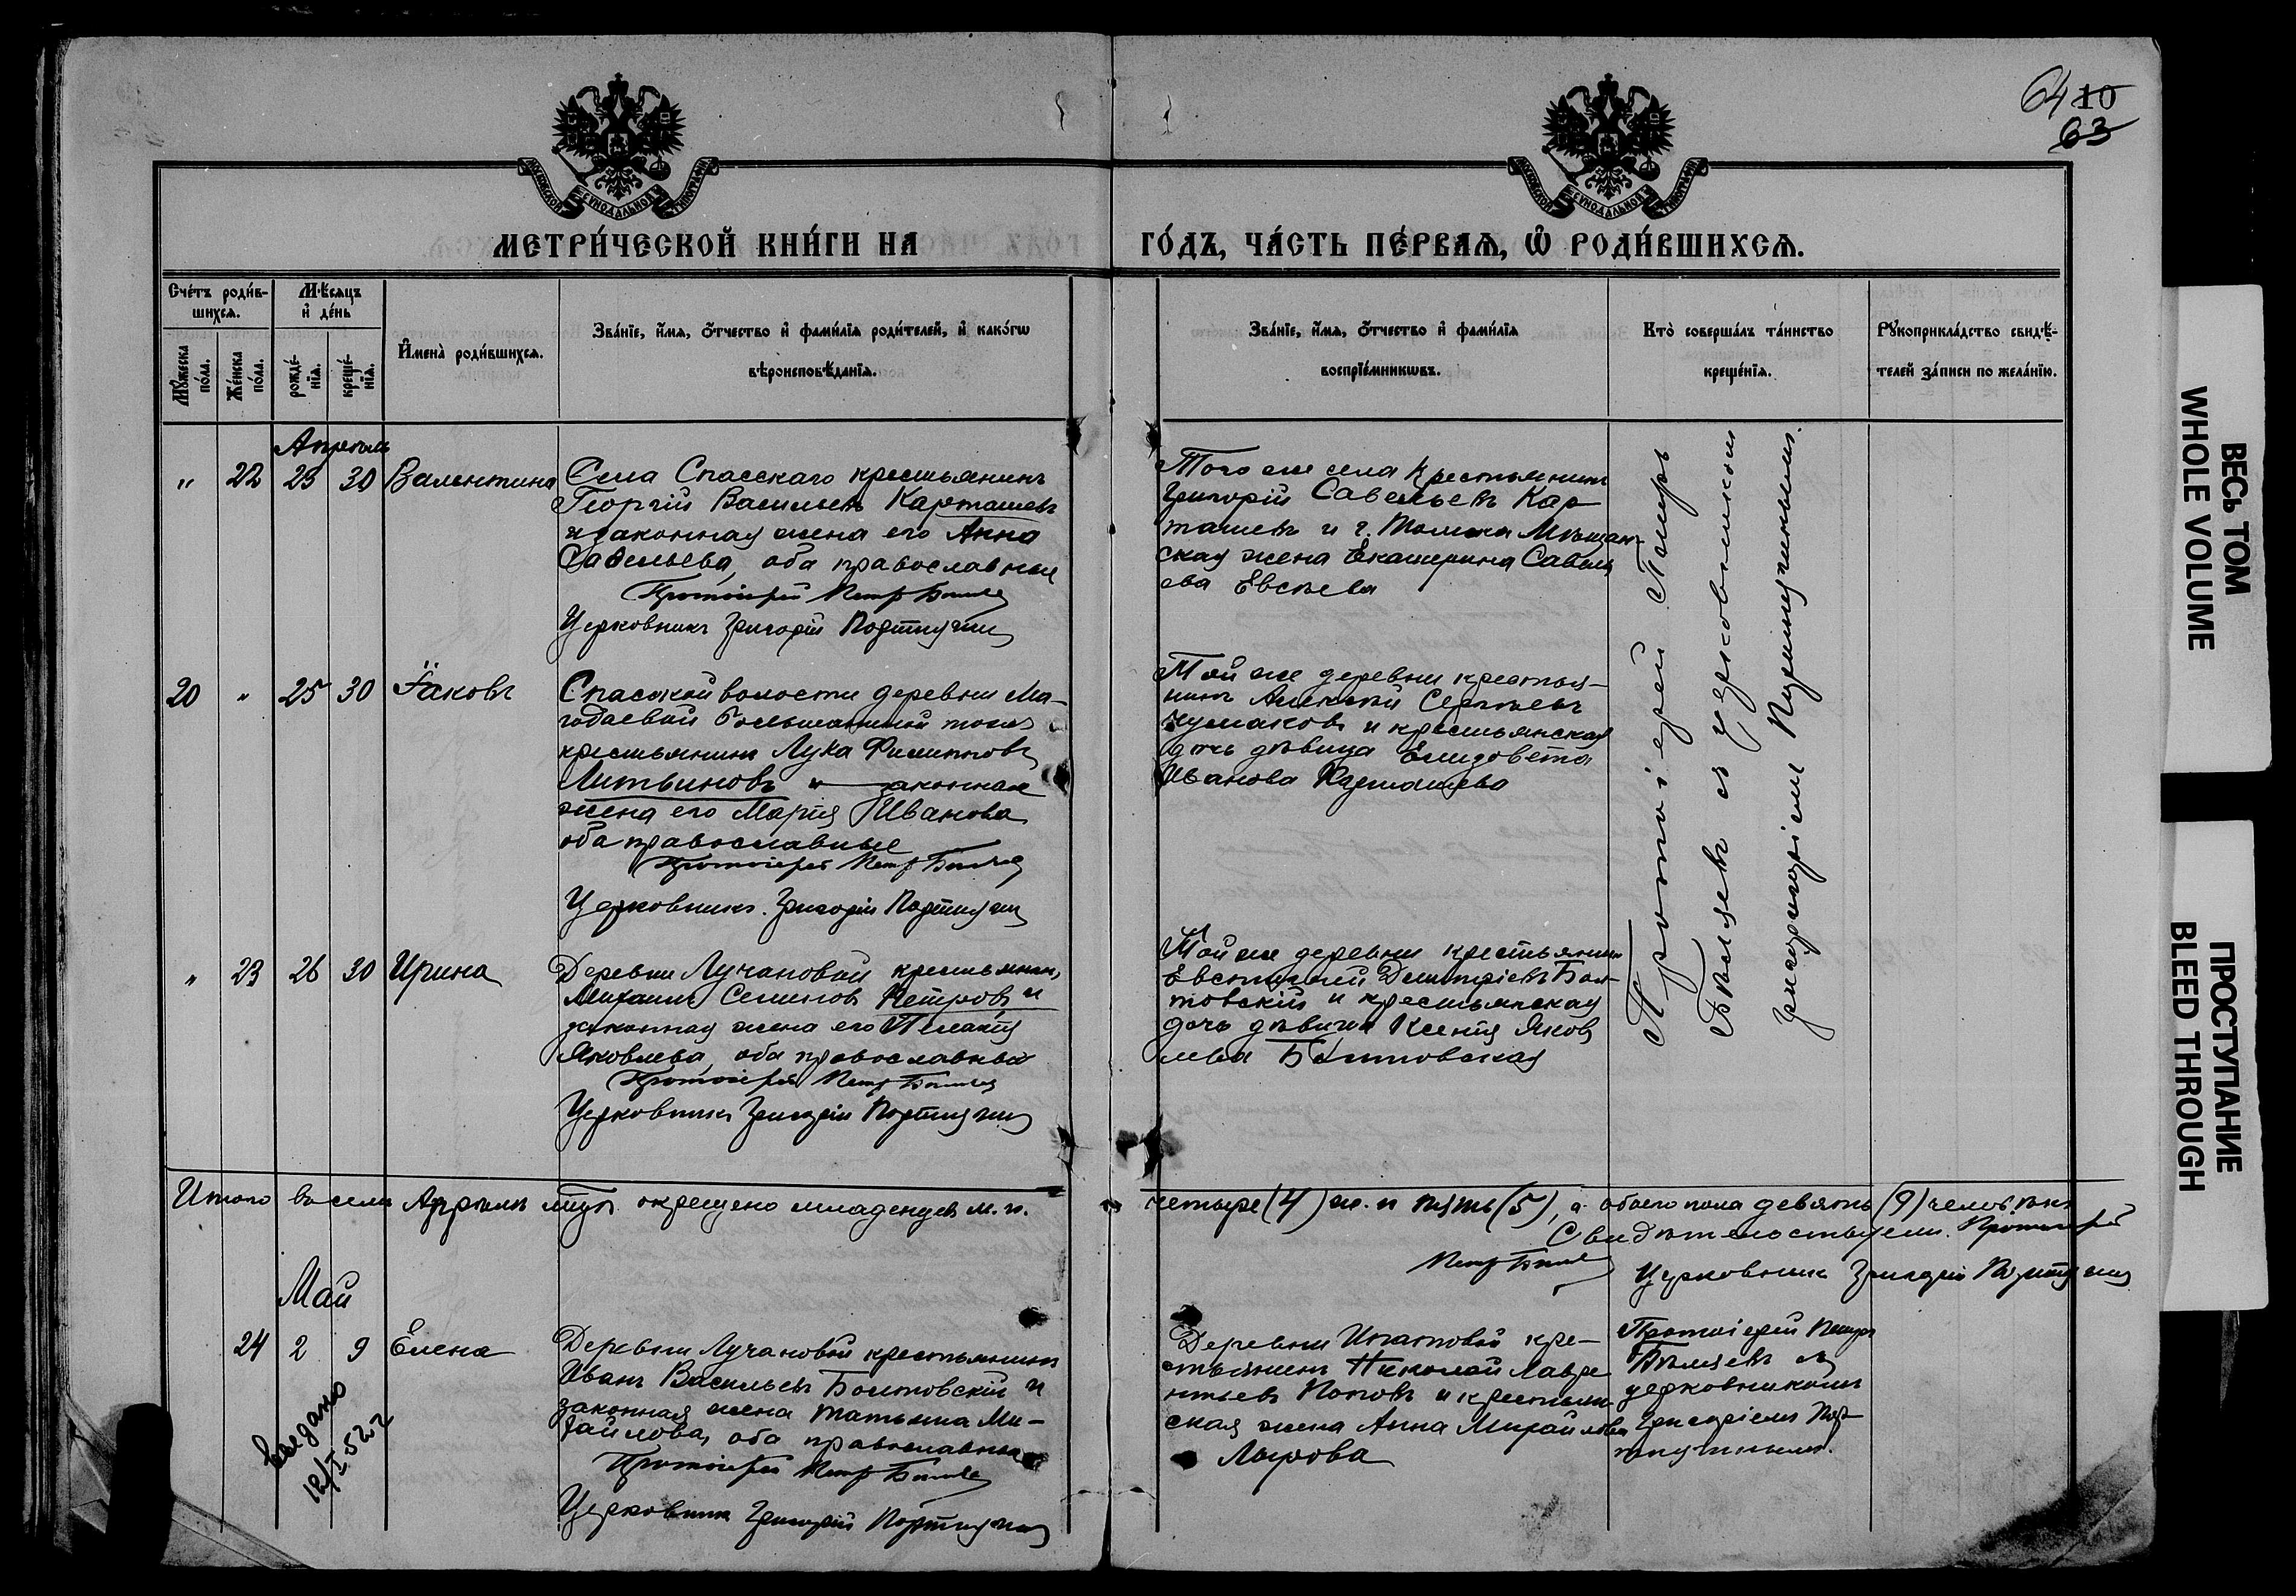 64 10
63
МОСКОВСКОЙ СѴНОДАЛЬНОЙ ТИПОГРАФІИ
МОСКОВСКОЙ СѴНОДАЛЬНОЙ ТИПОГРАФІИ
МЕТРИ́ЧЕСКОЙ КНИ́ГИ НА
ГО́ДЪ, ЧА́СТЬ ПЕ́РВАѦ, Ѽ РОДИ́ВШИХСѦ.
Сче́тъ роди́в-
шихсѧ.
Мѣ́сѧцъ
и҆ де́нь
Мꙋ́жеска
по́ла.
Же́нска
по́ла.
рожде́-
нїѧ.
креще́-
нїѧ.
И҆мена̀ роди́вшихсѧ.
Зва́нїе, и҆́мѧ, ѻ҆́тчество и҆ фамі́лїѧ роди́телей, и҆ како́гѡ
вѣроисповѣ́данїѧ.
Зва́нїе, и҆́мѧ, ѻ҆́тчество и҆ фамі́лїѧ
воспрїе́мникѡвъ.
Кто̀ соверша́лъ та́инство
креще́нїѧ.
Рꙋкоприкла́дство свидѣ́-
телей за́писи по жела́нїю.
Апрѣль
" 22 23 30 Валентина
Села Спасскаго крестьянинъ
Георгій Васильевъ Карташевъ
и законная жена его Анна
Савельева, оба православные
Протоіерей Петръ Бѣляевъ
Церковникъ Григорій
Того же села крестьянинъ
Григорій Савельевъ Кар
ташевъ и г. Томска Мѣщан-
ская жена Екатерина Савель
ева Евсѣева
Протоіерей Петръ
Бѣляевъ съ церковникомъ
Григоріемъ
20 " 25 30 Іаковъ
Спасской волости деревни Ма-
гадаевой
крестьянинъ Лука Филипповъ
Литвиновъ и законная
жена его Марія Иванова
оба православные
Протоіерей Петръ Бѣляевъ
Церковникъ Григорій
Той же деревни крестья-
нинъ Алексѣй Сергѣевъ
Чумаковъ и крестьянская
дочь дѣвица Елизовета
Иванова Карташева
" 23 26 30 Ирина
Деревни Лучановой крестьянинъ
Михаилъ Семеновъ Петровъ и
законная жена его Пелагія
Яковлева, оба православные
Протоіерей Петръ Бѣляевъ
Церковникъ Григорій
Той же деревни крестьянинъ
Евстигней Димитріевъ Бол-
товскій и крестьянская
дочь дѣвица Ксенія Яков
лева Болтовская
Итого въ семъ Апрѣлѣ мцѣ окрещено младенцевъ м. п.
четыре (4) ж. п пять (5), а обоего пола девять (9) человѣкъ
Свидѣтельствуемъ. Протоіерей
Петръ Бѣляевъ
Церковникъ Григорій
Май
24 2 9 Елена
Деревни Лучановой крестьянинъ
Иванъ Васильевъ Болтовскій и
законная жена Татьяна Ми-
хайлова, оба православные
Протоіерей Петръ Бѣляевъ
Церковникъ Григорій
Деревни Ипатовой кре-
стьянинъ Николай Лавре
нтьевъ Поповъ и крестьян
ская жена Анна Михайлова
Протоіерей Петръ
Бѣляевъ съ
церковникомъ
Григоріемъ
выдано
12/I 52 г
ВЕСЬ ТОМ
WHOLE VOLUME
ПРОСТУПАНИЕ
BLEED THROUGH